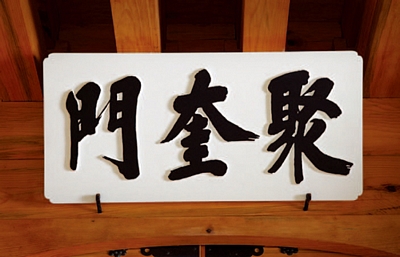 聚奎門